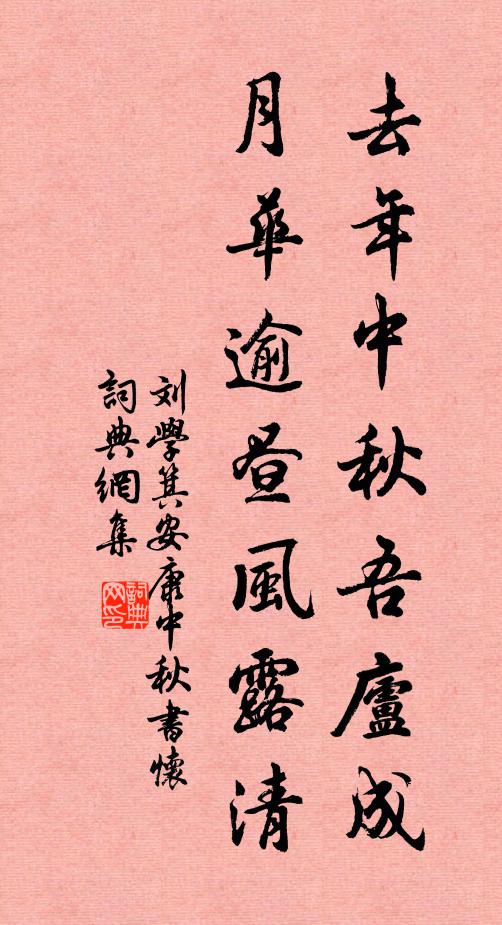 去年中秋吾廬成
月華逾晝風露清
刘學箕安康中秋書懷
詞典網集
詞典网印